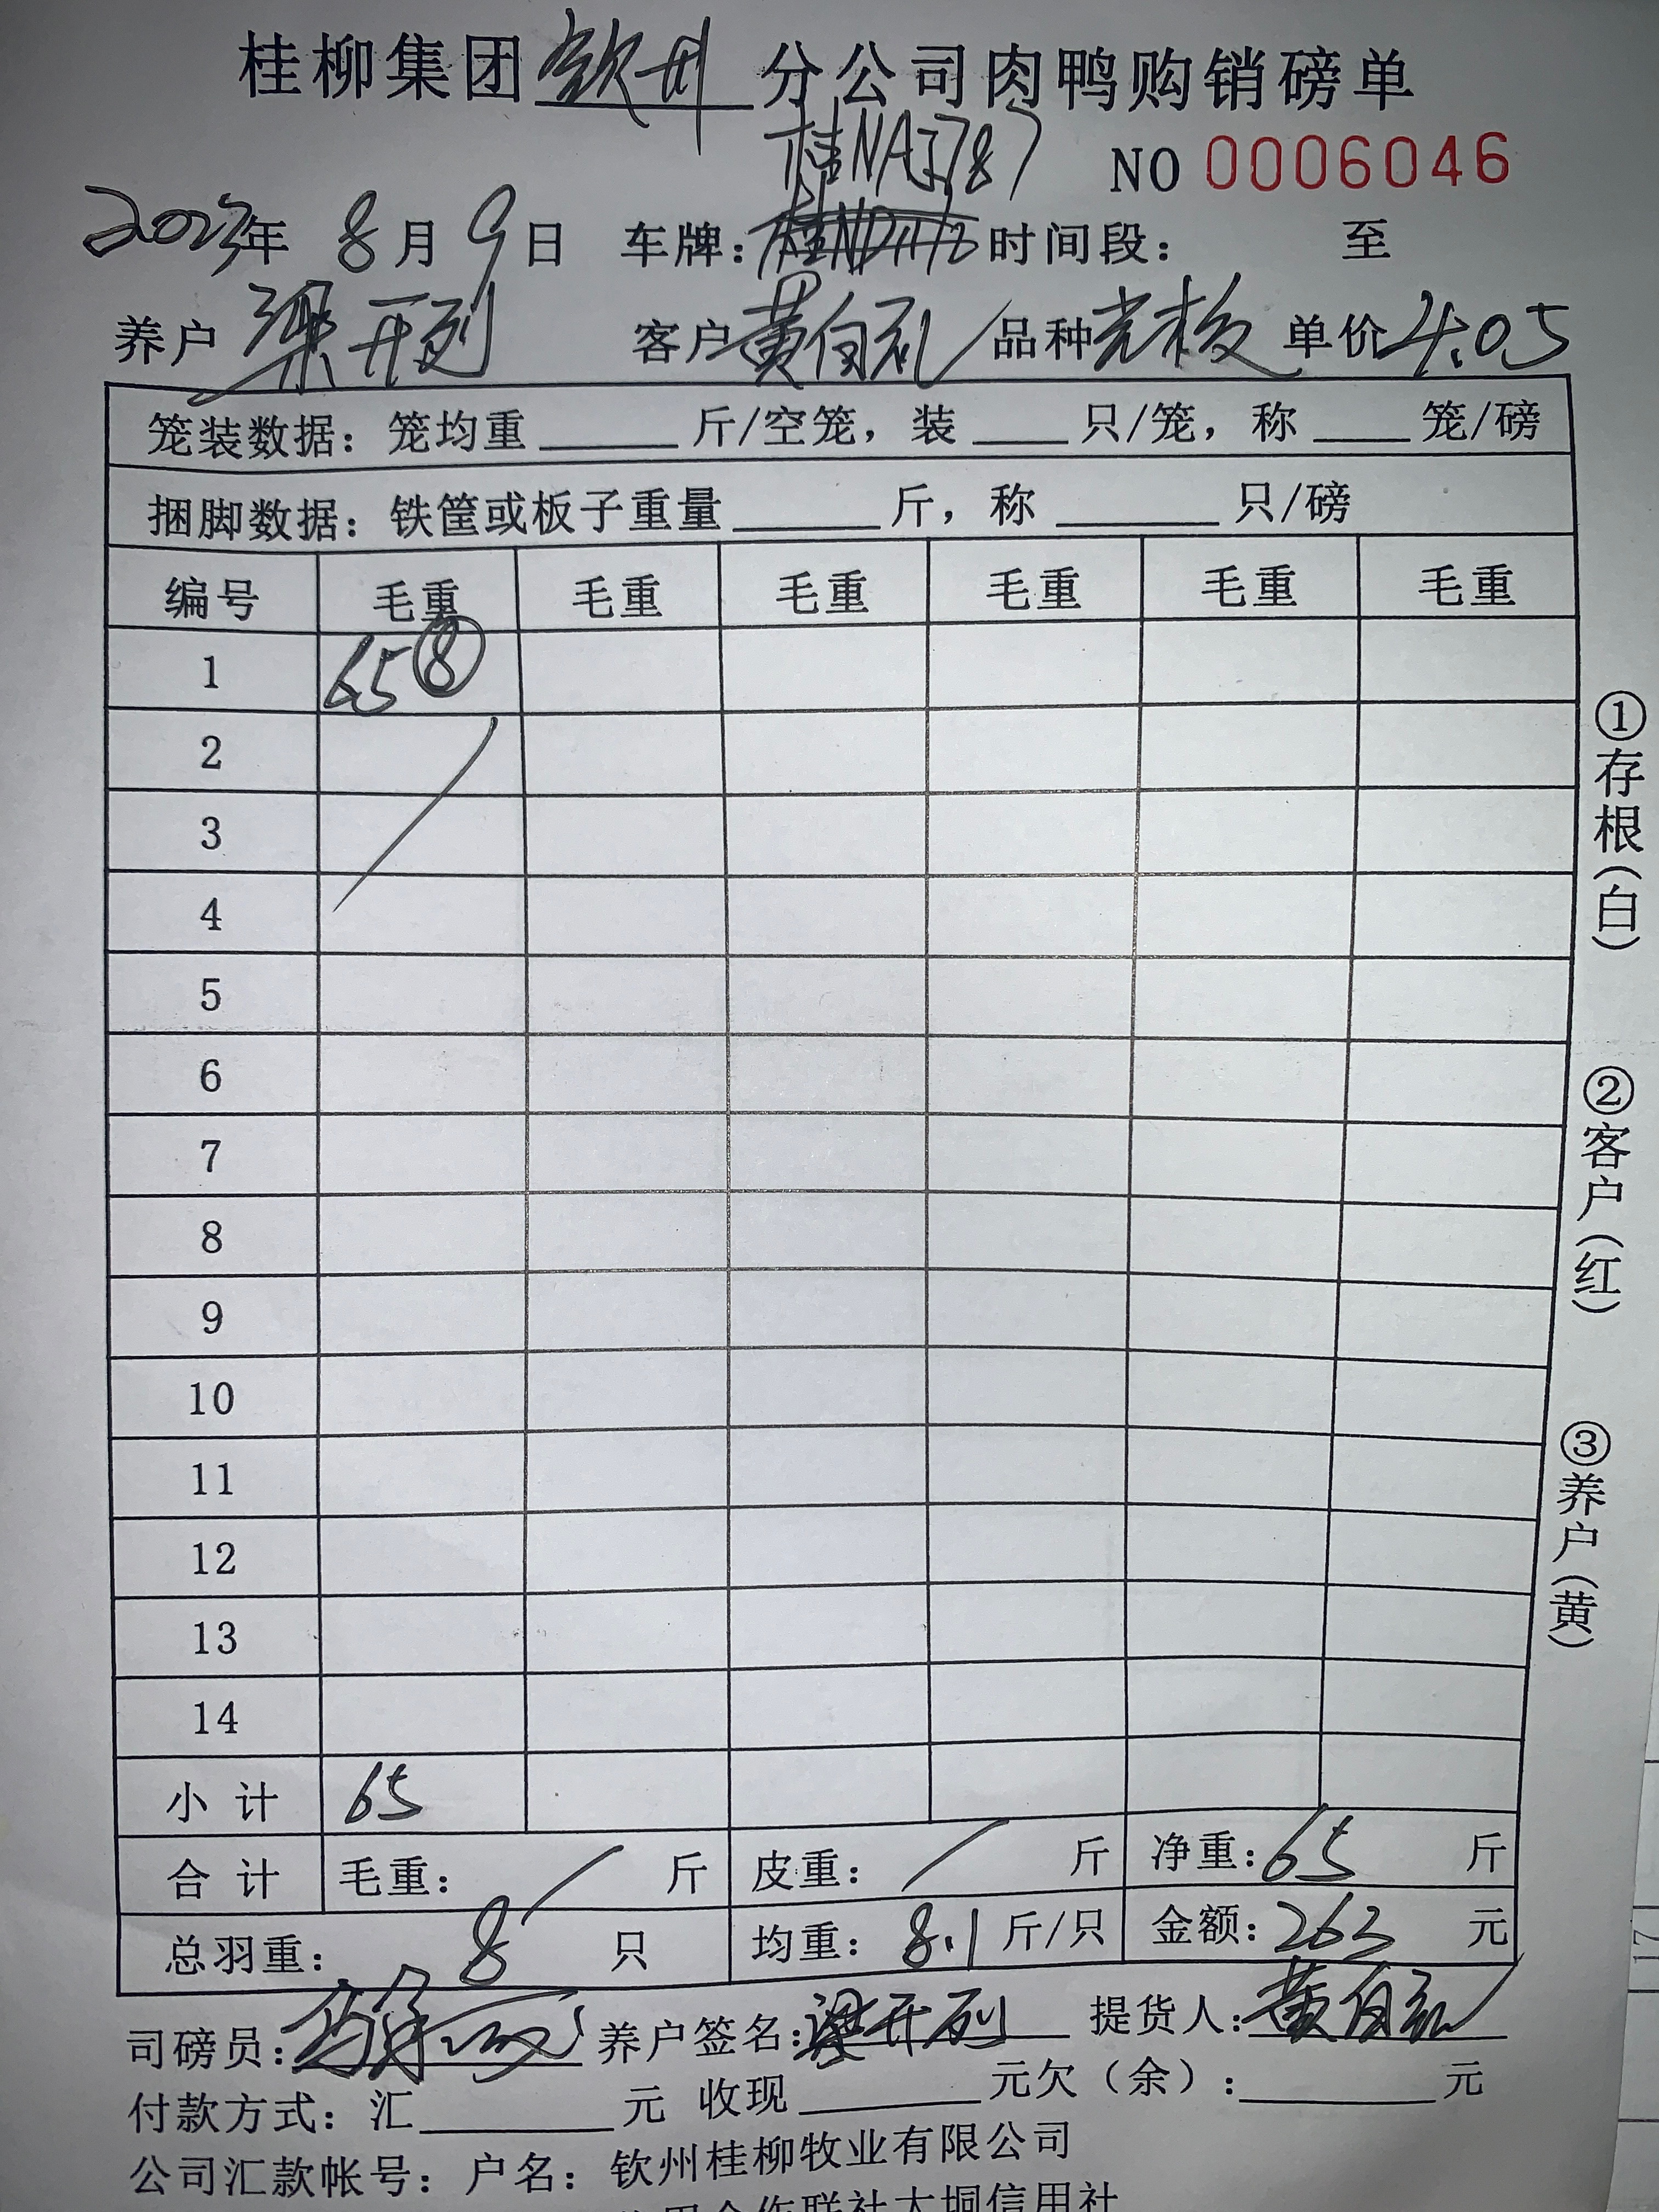 桂柳集团 钦州 分公司肉鸭购销磅单
桂NA3787
NO 0006046
2023年 8月9日 车牌: 时间段: 至
养户 梁开列 客户 黄自礼 品种 单价 4.05
笼装数据: 笼均重 ____ 斤/空笼, 装 ____ 只/笼, 称 ____ 笼/磅
捆脚数据: 铁筐或板子重量 ____ 斤, 称 ____ 只/磅
编号 毛重 毛重 毛重 毛重 毛重 毛重
1 65 ⑧
2
3
4
5
6
7
8
9
10
11
12
13
14
小计 65
合计 毛重: / 斤 皮重: / 斤 净重: 65 斤
总羽重: 8 只 均重: 8.1 斤/只 金额: 263 元
司磅员: 养户签名: 梁开列 提货人: 黄自礼
付款方式: 汇 ____ 元 收现 ____ 元欠(余): ____ 元
公司汇款帐号: 户名: 钦州桂柳牧业有限公司
合作联社大垌信用社
①存根(白)
②客户(红)
③养户(黄)